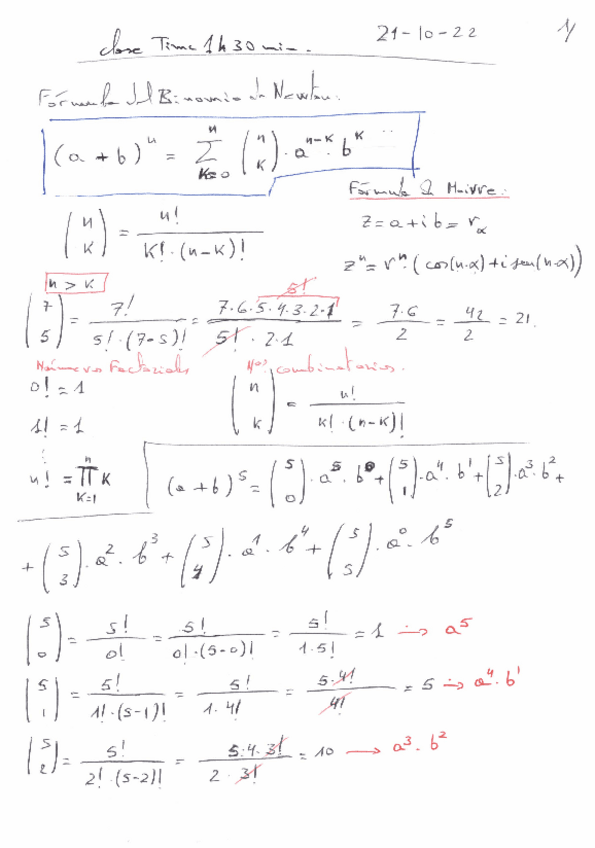 clase Time 1h 30 min. 21-10-22 1/
Fórmula del Binomio de Newton:
(a + b)^n = ∑_{k=0}^{n} (n k) · a^{n-k} · b^k
Fórmula de Moivre:
(n k) = n! / (k! · (n-k)!) z = a + ib = r_α
z^n = r^n · (cos(n·α) + i sen(n·α))
n > k 5!
(7 5) = 7! / (5! · (7-5)!) = 7·6·5·4·3·2·1 / (5! · 2·1) = 7·6 / 2 = 42 / 2 = 21.
Números Factoriales Nos combinatorios.
0! = 1 (n k) = n! / (k! · (n-k)!)
1! = 1
⋮
n! = ∏_{k=1}^{n} k (a + b)^5 = (5 0) · a^5 · b^0 + (5 1) · a^4 · b^1 + (5 2) · a^3 · b^2 +
+ (5 3) · a^2 · b^3 + (5 4) · a^1 · b^4 + (5 5) · a^0 · b^5
(5 0) = 5! / 0! = 5! / (0! · (5-0)!) = 5! / (1·5!) = 1 → a^5
(5 1) = 5! / (1! · (5-1)!) = 5! / (1·4!) = 5·4! / 4! = 5 → a^4 · b^1
(5 2) = 5! / (2! · (5-2)!) = 5·4·3! / (2·3!) = 10 → a^3 · b^2